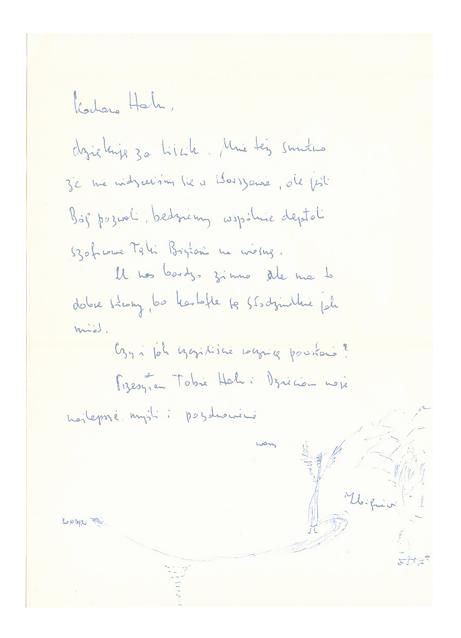 Kochana Halu,
dziękuję za liścik. Mnie też smutno
że nie widzieliśmy się w Warszawie, ale jeśli
Bóg pozwoli, będziemy wspólnie deptali
szafirowe Łąki Brytanii na wiosnę.
U nas bardzo zimno ale ma to
dobre strony, bo kartofle są słodziutkie jak
miód.
Czy i jak uczciliście rocznicę powstania?
Przesyłam Tobie Halu i Dzieciom moje
najlepsze myśli i pozdrowienia
wasz
Zbigniew